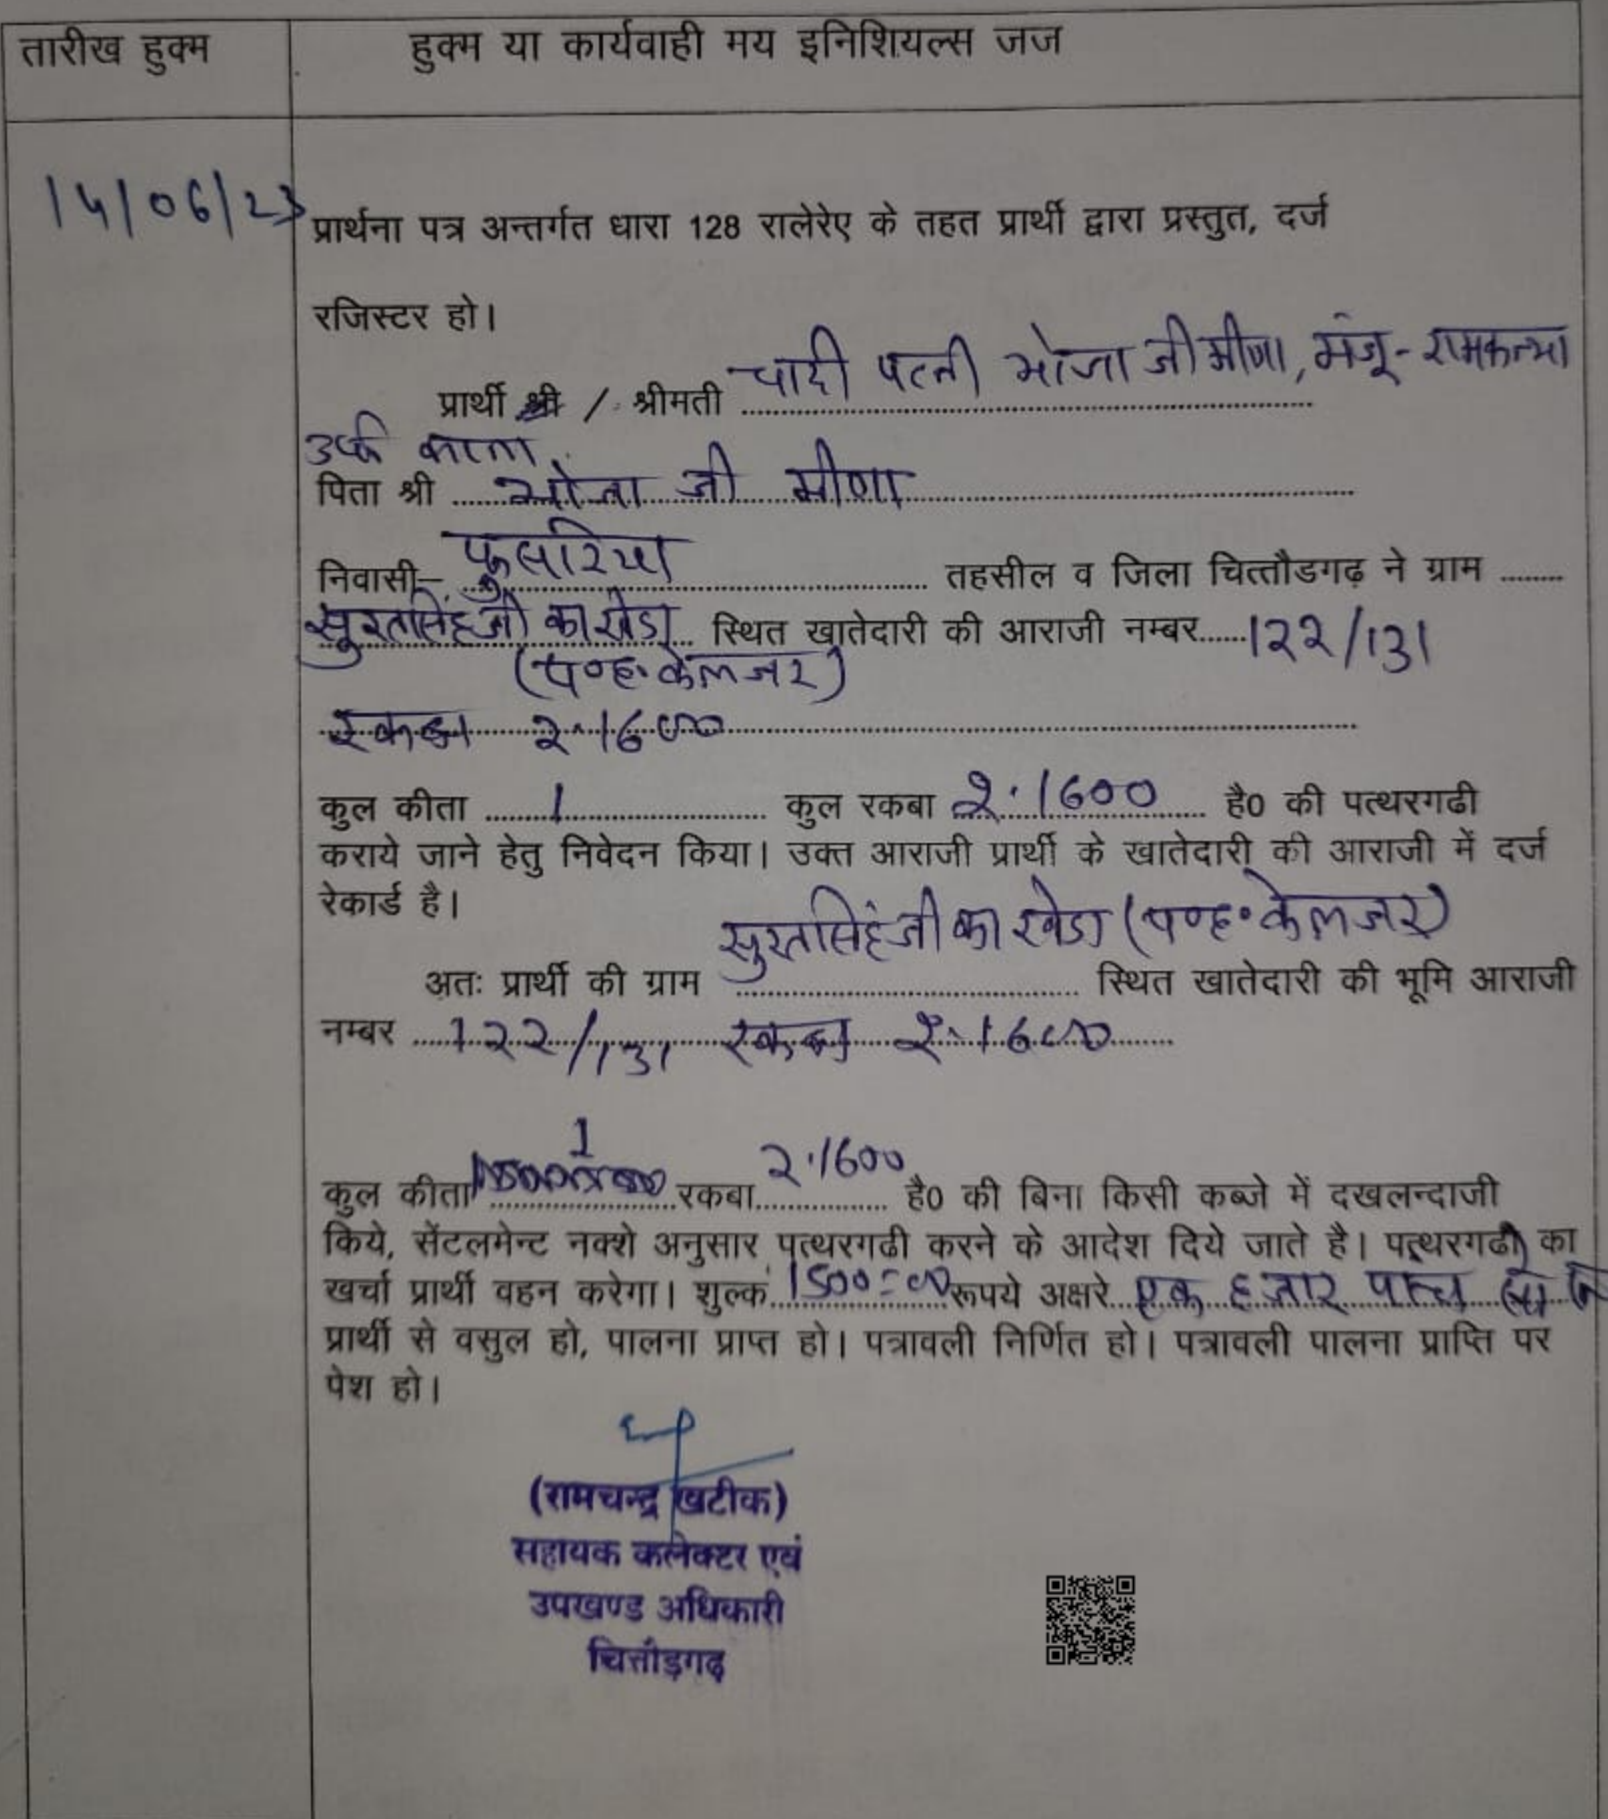 तारीख हुक्म
हुक्म या कार्यवाही मय इनिशियल्स जज
14/06/23
प्रार्थना पत्र अन्तर्गत धारा 128 रालेरेए के तहत प्रार्थी द्वारा प्रस्तुत, दर्ज
रजिस्टर हो।
प्रार्थी श्री / श्रीमती चादी पत्नी भोजा जी मीणा, मंजू - रामकन्या
उर्फ काला
पिता श्री भोजा जी मीणा
निवासी– फुसरिया तहसील व जिला चित्तौडगढ़ ने ग्राम
सुरतसिंहजी का खेडा स्थित खातेदारी की आराजी नम्बर 122/131
(प०ह० केलजर)
रकबा 2.1600
कुल कीता 1 कुल रकबा 2.1600 है0 की पत्थरगढी
कराये जाने हेतु निवेदन किया। उक्त आराजी प्रार्थी के खातेदारी की आराजी में दर्ज
रेकार्ड है।
सुरतसिंहजी का खेडा (प०ह० केलजर)
अतः प्रार्थी की ग्राम स्थित खातेदारी की भूमि आराजी
नम्बर 122/131 रकबा 2.1600
कुल कीता 1 रकबा 2.1600 है0 की बिना किसी कब्जे में दखलन्दाजी
किये, सेंटलमेन्ट नक्शे अनुसार पत्थरगढी करने के आदेश दिये जाते है। पत्थरगढी का
खर्चा प्रार्थी वहन करेगा। शुल्क 1500=00 रूपये अक्षरे एक हजार पान्च
प्रार्थी से वसुल हो, पालना प्राप्त हो। पत्रावली निर्णित हो। पत्रावली पालना प्राप्ति पर
पेश हो।
(रामचन्द्र खटीक)
सहायक कलेक्टर एवं
उपखण्ड अधिकारी
चित्तौड़गढ़